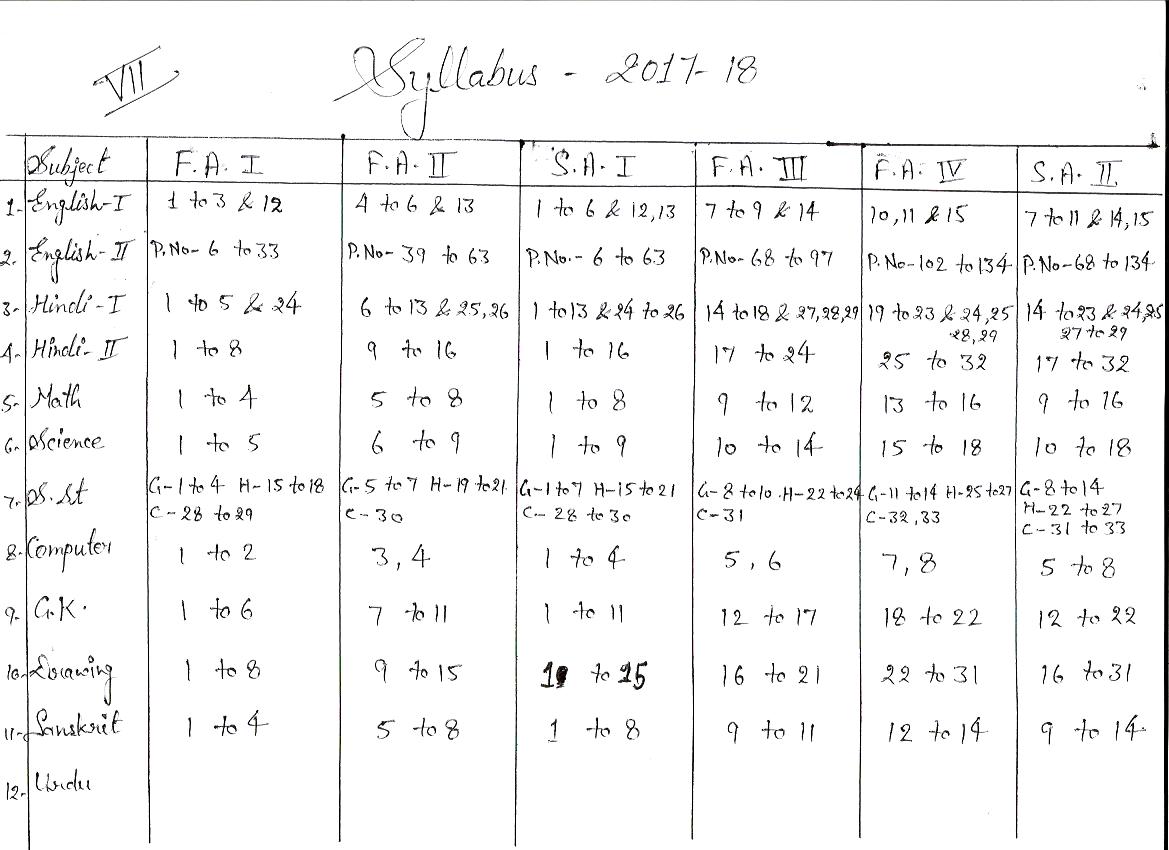 VII Syllabus - 2017-18
Subject F.A. I F.A. II S.A. I F.A. III F.A. IV S.A. II
1- English-I 1 to 3 & 12 4 to 6 & 13 1 to 6 & 12,13 7 to 9 & 14 10,11 & 15 7 to 11 & 14,15
2- English-II P.No-6 to 33 P.No-39 to 63 P.No.-6 to 63 P.No-68 to 97 P.No-102 to 134 P.No-68 to 134
3- Hindi-I 1 to 5 & 24 6 to 13 & 25,26 1 to 13 & 24 to 26 14 to 18 & 27,28,29 19 to 23 & 24,25 14 to 23 & 24,25
28,29 27 to 29
4- Hindi-II 1 to 8 9 to 16 1 to 16 17 to 24 25 to 32 17 to 32
5- Math 1 to 4 5 to 8 1 to 8 9 to 12 13 to 16 9 to 16
6- Science 1 to 5 6 to 9 1 to 9 10 to 14 15 to 18 10 to 18
7- S.St G-1 to 4 H-15 to 18 G-5 to 7 H-19 to 21 G-1 to 7 H-15 to 21 G-8 to 10 H-22 to 24 G-11 to 14 H-25 to 27 G-8 to 14
C-28 to 29 C-30 C-28 to 30 C-31 C-32,33 H-22 to 27
C-31 to 33
8- Computer 1 to 2 3,4 1 to 4 5,6 7,8 5 to 8
9- G.K. 1 to 6 7 to 11 1 to 11 12 to 17 18 to 22 12 to 22
10- Drawing 1 to 8 9 to 15 1 to 15 16 to 21 22 to 31 16 to 31
11- Sanskrit 1 to 4 5 to 8 1 to 8 9 to 11 12 to 14 9 to 14
12- Urdu